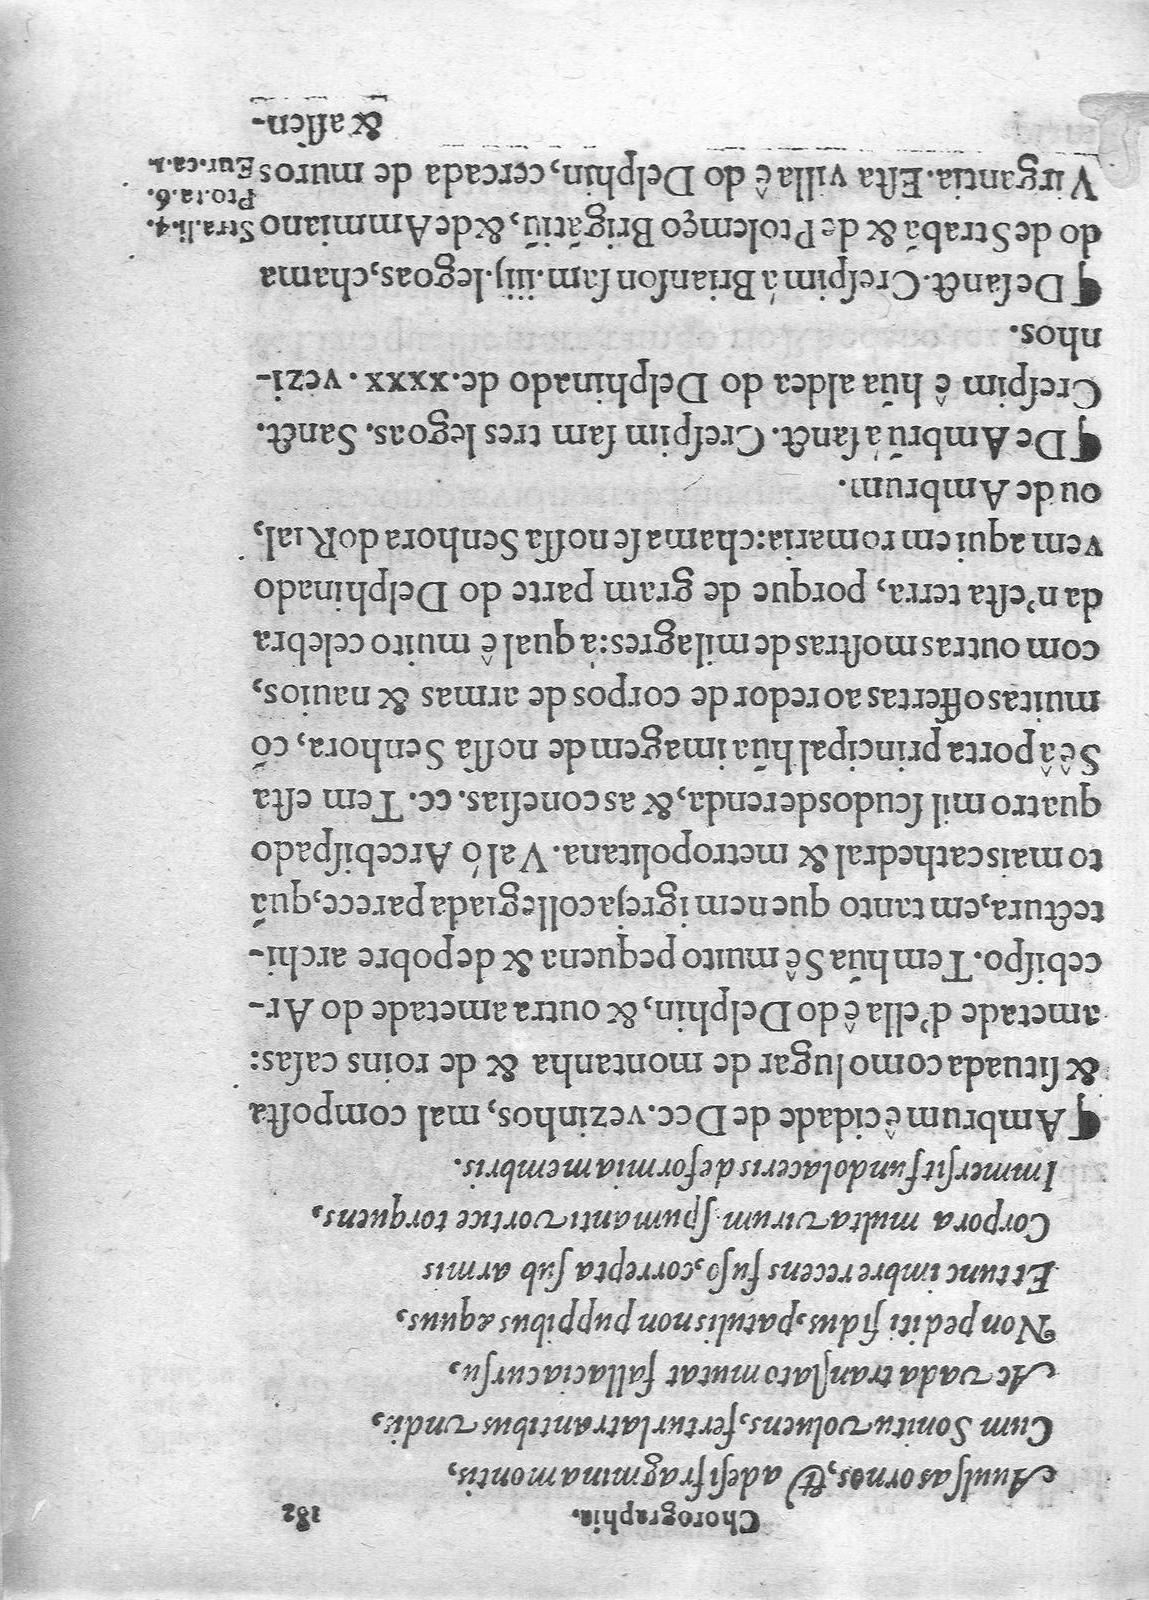 Chorographia. 182
Auulsas ornos, & adesi fragmina montis,
Cum Sonitu voluens, fertur latrantibus vndis,
Ac vada translato mutat fallacia cursu,
Non pediti fidus, patulis non puppibus æquus,
Et tunc imbre recens fuso, correpta sub armis
Corpora multa virum spumanti vortice torquens,
Immersit fundo laceris deformia membris.
¶ Ambrum ê cidade de Dcc. vezinhos, mal composta
& situada como lugar de montanha & de roins casas:
ametade d'ella ê do Delphin, & outra ametade do Ar-
cebispo. Tem hũa Sê muito pequena & de pobre archi-
tectura, em tanto que nem igreja collegiada parece, quã
to mais cathedral & metropolitana. Val ó Arcebispado
quatro mil scudos de renda, & as conesias. cc. Tem esta
Sê â porta principal hũa imagem de nossa Senhora, cõ
muitas offertas ao redor de corpos de armas & nauios,
com outras mostras de milagres: á qual ê muito celebra
da n'esta terra, porque de gram parte do Delphinado
vem aqui em romaria: chamase nossa Senhora do Rial,
ou de Ambrum.
¶ De Ambrũ á sanct. Crespim sam tres legoas. Sanct.
Crespim ê hũa aldea do Delphinado de. xxxx. vezi-
nhos.
¶ De sanct. Crespim á Brianson sam. iiij. legoas, chama
do de Strabã & de Ptolemęo Brigãtiũ, & de Ammiano Stra. li. 4.
Pto. ta. 6.
Virgantia. Esta villa ê do Delphin, cercada de muros Eur. ca. 1.
& assen-